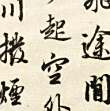 途間
起空外
川撥煙